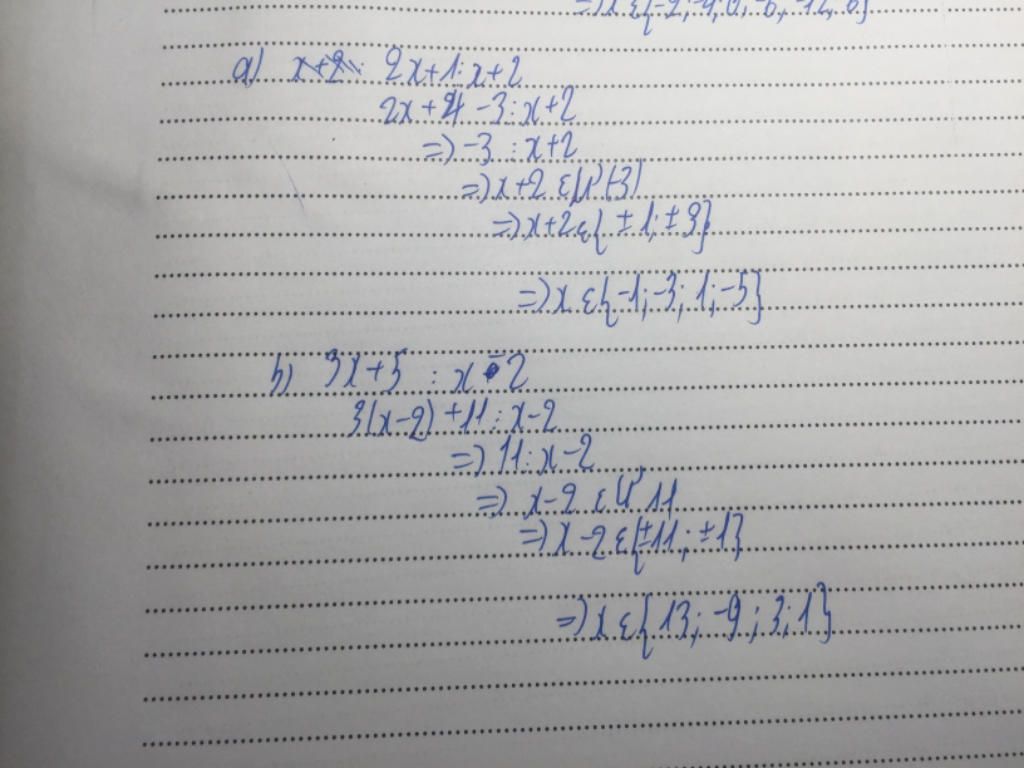 =) x ε {-2; -4; 0; -6; -12; 8}
a) 2x+1 ⋮ x+2
2x+4 -3 ⋮ x+2
=) -3 ⋮ x+2
=) x+2 ε Ư(-3)
=) x+2 ε { ±1; ±3}
=) x ε {-1; -3; 1; -5}
b) 3x+5 ⋮ x-2
3(x-2) +11 ⋮ x-2
=) 11 ⋮ x-2
=) x-2 ε Ư 11
=) x-2 ε {±11; ±1}
=) x ε {13; -9; 3; 1}